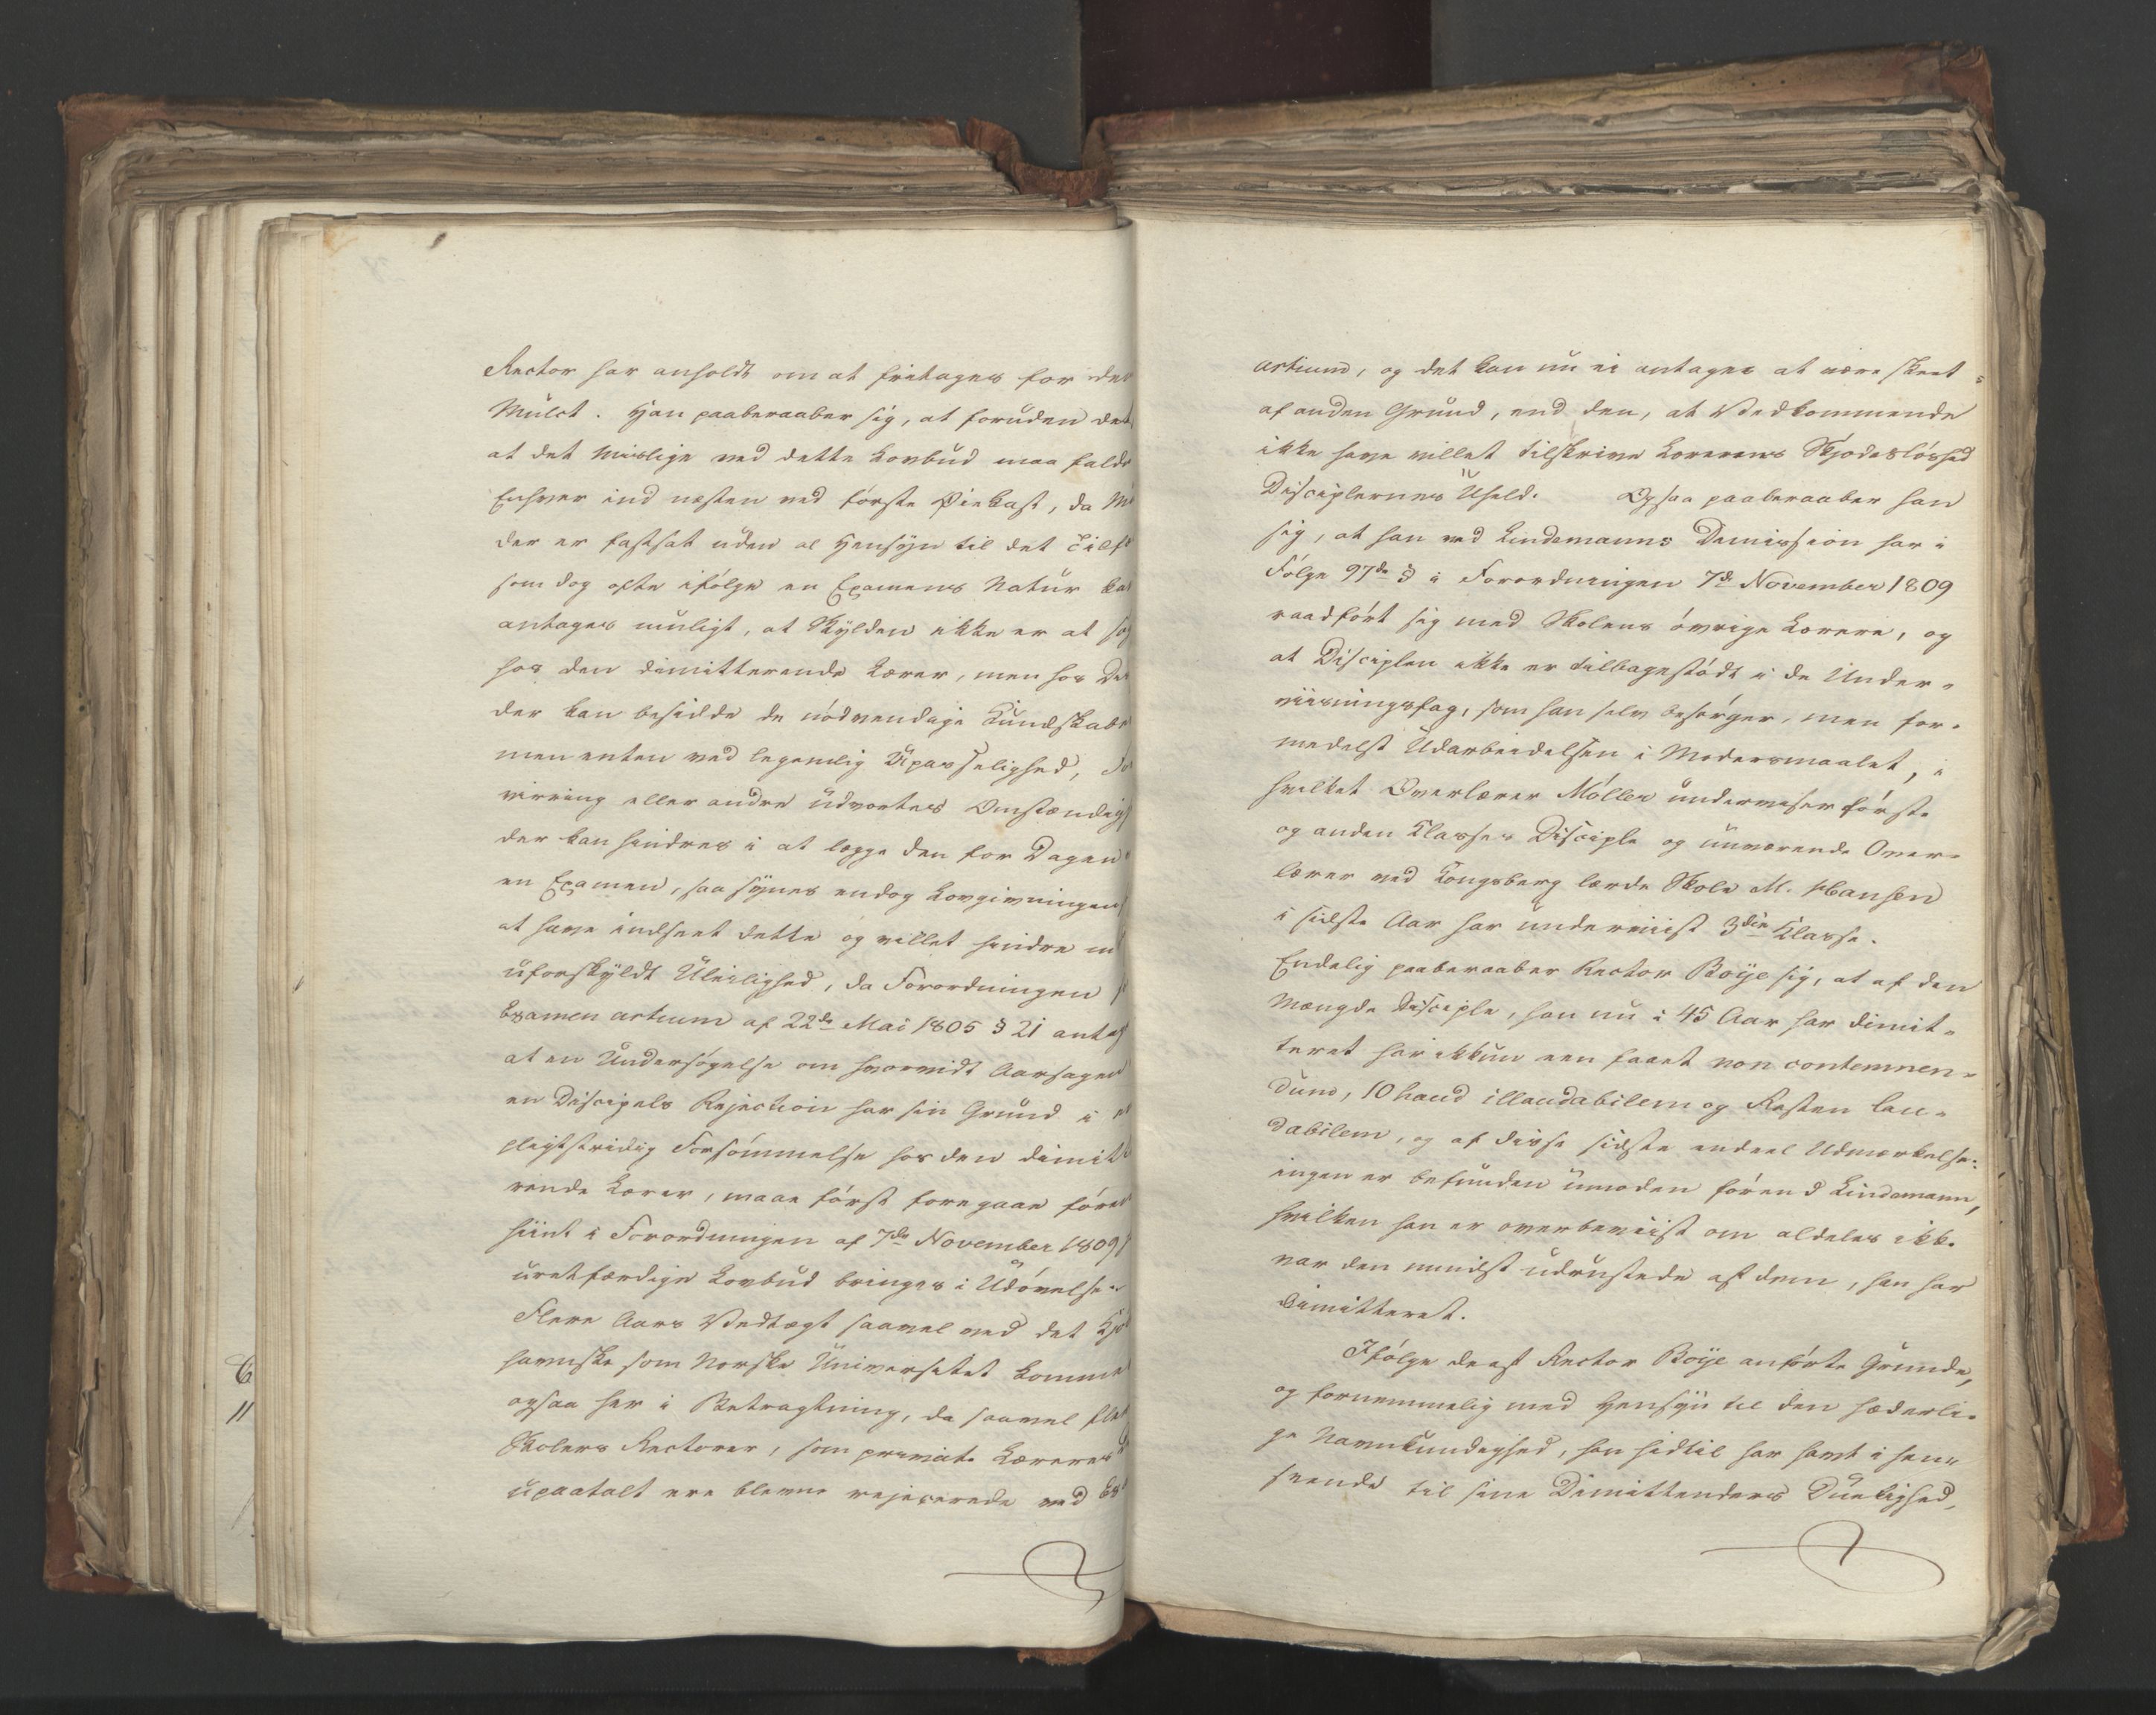 Rector har anholdt om at fritages for den
Mulct. Han paaberaaber sig, at foruden det
at det mislige ved dette Lovbud maa falde
Enhver ind næsten ved første Øiekast, da M
der er fastsat uden al Hensyn til det Tilf
som dog ofte ifølge en Examens Natur ka
antages muligt, at Skylden ikke er at søg
hos den dimitterende Lærer, men hos De
der kan besidde de nødvendige Kundskabe
men enten ved legemlig Upasselighed, Fo
virring eller andre udvortes Omstændig
der kan hindres i at lægge den for Dagen
en Examen, saa synes endog Lovgivningen
at have indseet dette og villet hindre
uforskyldt Uleilighed, da Forordningen
Examen artium af 22de Mai 1805 § 21 antag
at en Undersøgelse om hvorvidt Aarsagen
en Discipels Rejection har sin Grund i en
pligtstridig Forsømmelse hos den dimitte
rende Lærer, maae først foregaae føren
hiint i Forordningen af 7de November 1809
uretfærdige Lovbud bringes i Udøvelse.
Flere Aars Vedtægt saavel ved det Kjø
havnske som Norske Universitet komme
ogsaa her i Betragtning, da saavel fle
Skolers Rectorer, som private Læreres
upaatalt ere blevne rejicerede ved Ex
6
11
artium, og det kan nu ei antages at være skeet
af anden Grund, end den, at Vedkommende
ikke have villet tilskrive Lærerens Skjødesløshed
Disciplernes Uheld. Ogsaa paaberaaber han
sig, at han ved Lindemanns Dimission har i
Følge 97de § i Forordningen 7de November 1809
raadført sig med Skolens øvrige Lærere, og
at Disciplen ikke er tilbagestødt i de Under-
viisningsfag, som han selv besørger, men for-
medelst Udarbeidelsen i Modersmaalet, i
hvilket Overlærer Møller underviser første
og anden Klasses Disciple og nuværende Over-
lærer ved Kongsberg lærde Skole M. Hansen
i sidste Aar har underviist 3die Klasse.
Endelig paaberaaber Rector Boye sig, at af den
Mængde Disciple, han nu i 45 Aar har dimit-
teret har ikkun een faaet non contemnen-
dum, 10 haud illaudabilem og Resten lau-
dabilem, og af disse sidste endeel Udmærkelse:
ingen er befunden umoden førend Lindemann,
hvilken han er overbeviist om aldeles ikke
var den mindst udrustede af dem, han har
dimitteret.
Ifølge de af Rector Boye anførte Grunde,
og fornemmelig med Hensyn til den hæderli-
ge Navnkundighed, han hidtil har havt i Hen-
seende til sine Dimittenders Duelighed,